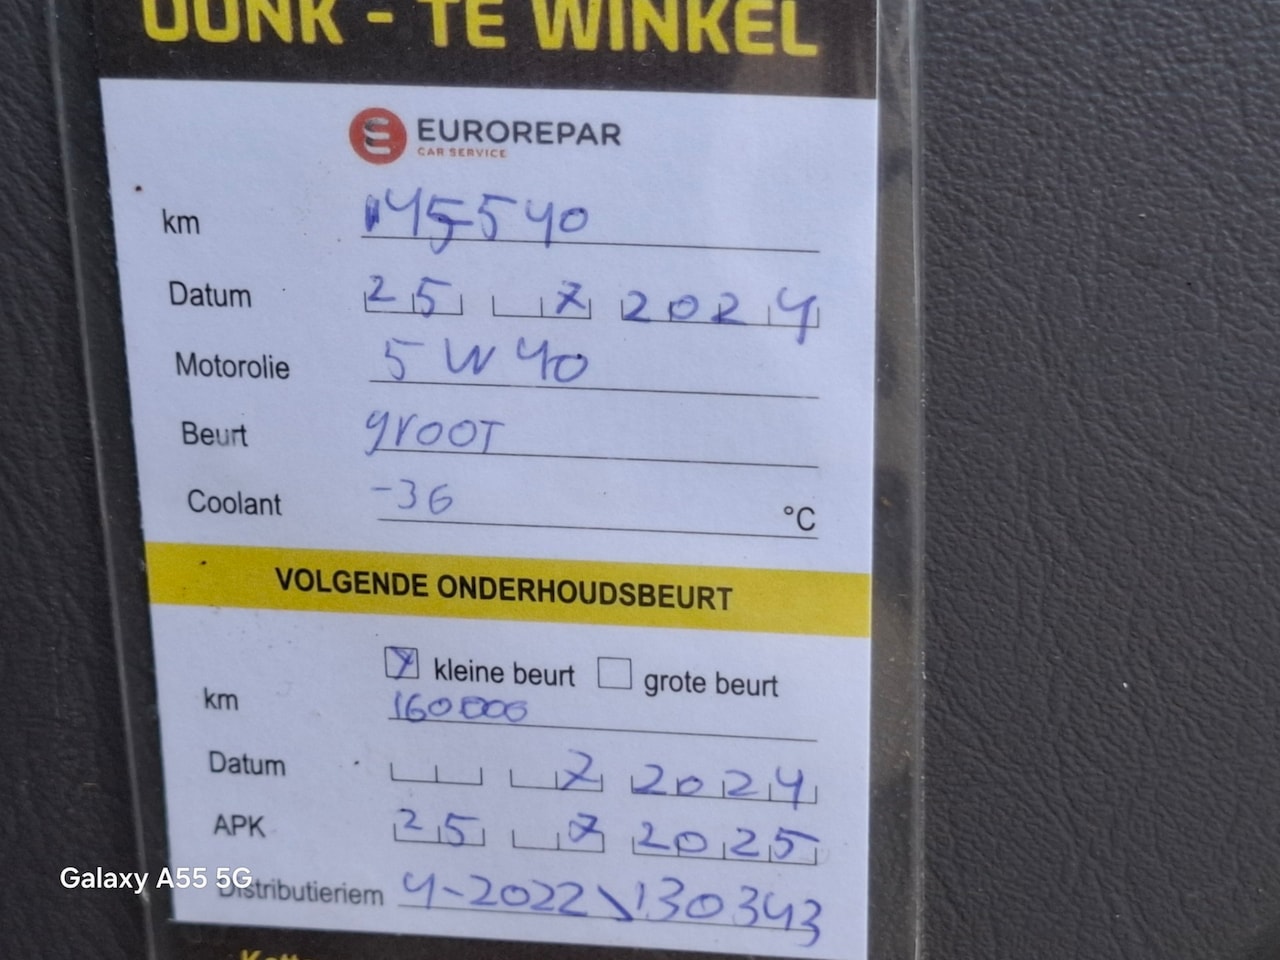 OONK - TE WINKEL
EUROREPAR
CAR SERVICE
km 145540
Datum 25 7 2024
Motorolie 5W40
Beurt groot
Coolant -36 °C
VOLGENDE ONDERHOUDSBEURT
☒ kleine beurt ☐ grote beurt
km 160000
Datum 7 2024
APK 25 7 2025
Galaxy A55 5G
Distributieriem 4-2022 \ 130343